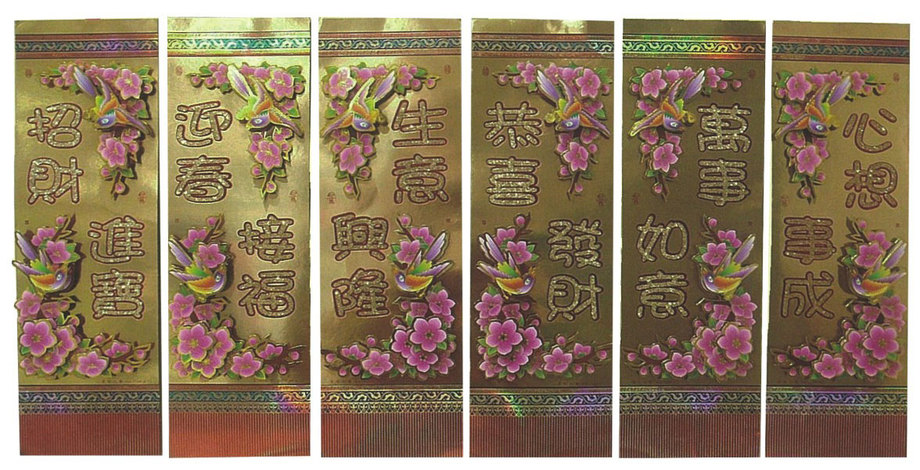 招財
進寶
迎春
接福
生意
興隆
恭喜
發財
萬事
如意
心想
事成